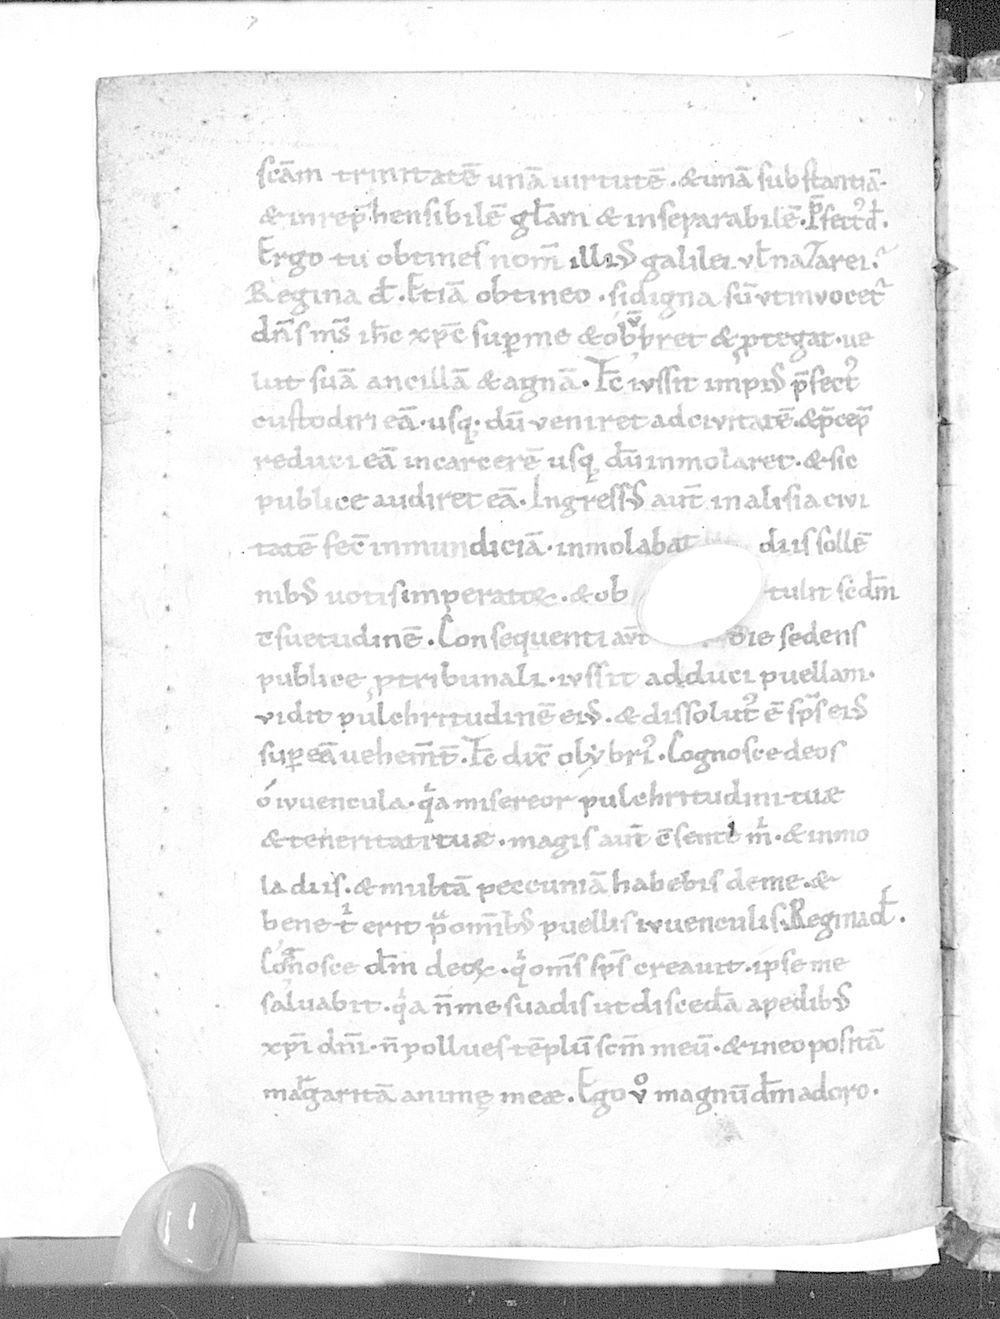 scām trinitatē unā uirtutē . & unā substantiā.
& inrep̄hensibilē gl̄am & inseparabilē. P̄fect᷒ d̄.
Ergo tu obtines nom̄ illi᷒ galilei vl̄ nazarei.
Regina d̄. Etiā obtineo . si digna sū vt invocet᷑
dn̄s ms̄ ih̄c xp̄c sup me & obūbret & ꝓtegat . ue
lut suā ancillā & agnā . Tc̄ iussit impi᷒ p̄fect᷒
custodiri eā . usq; dū veniret ad civitatē . & p̄cep̄
reduci eā in carcerē usq; dū inmolaret . & sic
publice audiret eā . Ingress᷒ aut̄ in alisia civi
tatē fec̄ inmundiciā . inmolabat diis sollē
nib᷒ uotis imperatoꝝ . & ob tulit scd̄m
c̄suetudinē . Consequenti aut̄ die sedens
publice ꝓ tribunali . iussit adduci puellam .
vidit pulchritudinē ei᷒ . & dissolut᷒ ē sp̄s ei᷒
sup eā uehem̄t̄ . Tc̄ dix̄ olybri᷒ . Cognosce deos
ó iuuencula . qͥa misereor pulchritudini tuæ
& teneritati tuæ . magis aut̄ c̄senti mͥ . & inmo
la diis . & multā peccuniā habebis de me . &
bene tͥ erit p̄ omīb᷒ puellis iuuenculis . Regina d̄ .
Cognosce dm̄ deoꝝ . qͥ oms̄ sp̄s creauit . ipse me
saluabit . qͥa n̄ me suadis ut discedā a pedib᷒
xp̄i dm̄i . n̄ pollues tēplū scm̄ meū . & in eo positā
margaritā animę meæ . Ego v̊ magnū dm̄ adoro .